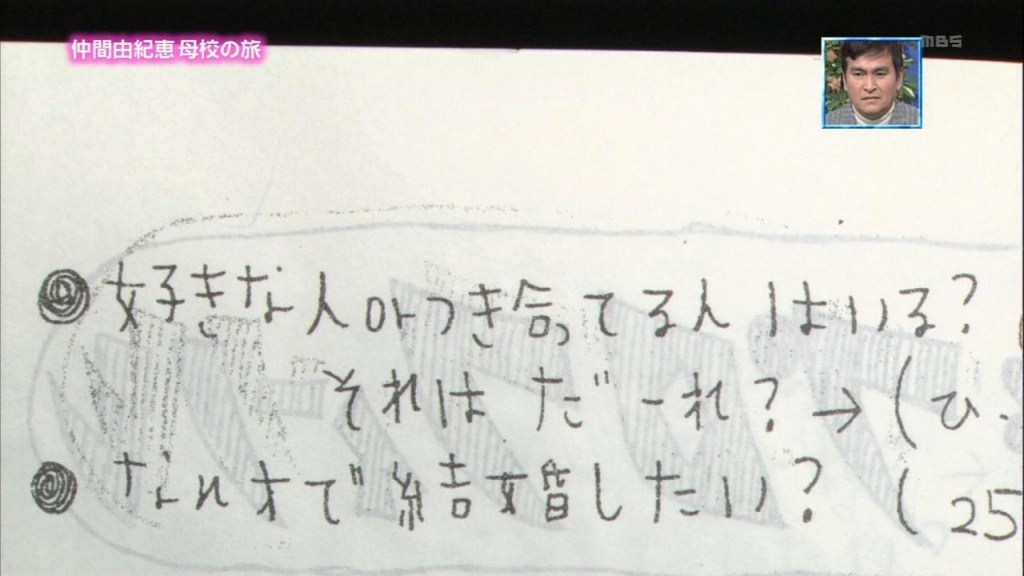 仲間由紀恵 母校の旅
MBS
◎好きな人orつき合ってる人はいる?
それはだーれ?→(ひ.
◎なん才で結婚したい?(25